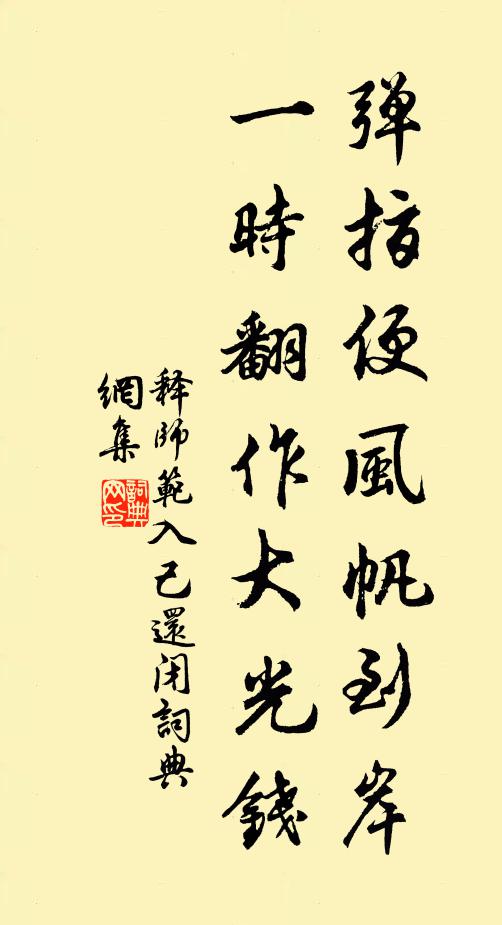 弹指便風帆到岸
一時翻作大光錢
释師範入己還闭詞典
網集
詞典網印